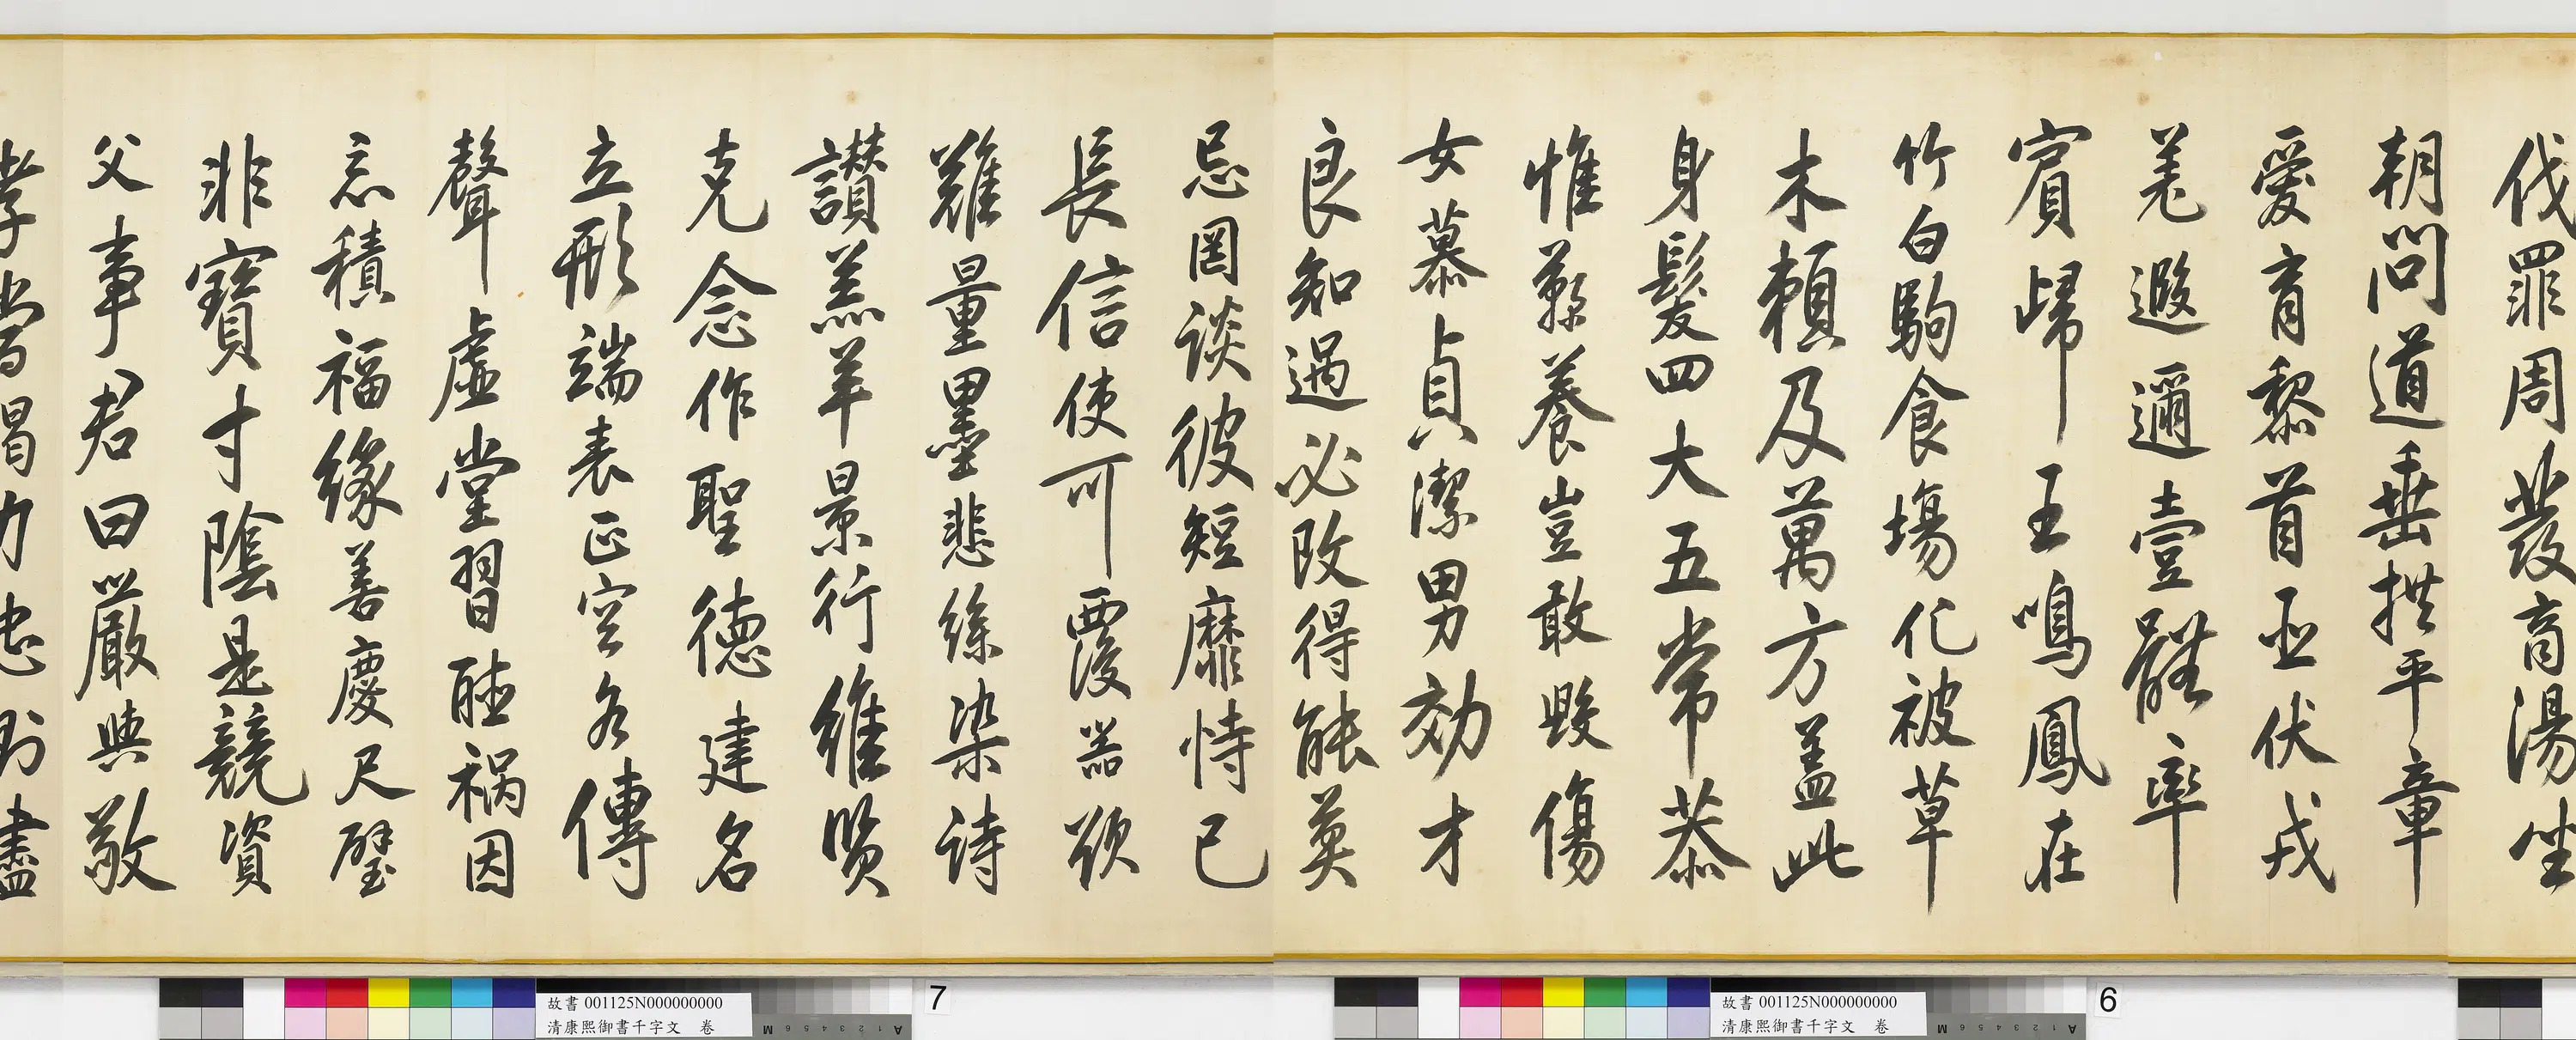 伐罪周發商湯坐
朝問道垂拱平章
愛育黎首臣伏戎
羌遐邇壹體率
賓歸王鳴鳳在
竹白駒食場化被草
木賴及萬方盖此
身髮四大五常恭
惟鞠養豈敢毀傷
女慕貞潔男効才
良知過必改得能莫
忘罔談彼短靡恃己
長信使可覆器欲
難量墨悲絲染詩
讚羔羊景行維賢
克念作聖德建名
立形端表正空谷傳
聲虛堂習聽禍因
惡積福緣善慶尺璧
非寶寸陰是競資
父事君曰嚴與敬
孝當竭力忠則盡
故書 001125N000000000
清康熙御書千字文 卷
7
故書 001125N000000000
清康熙御書千字文 卷
6